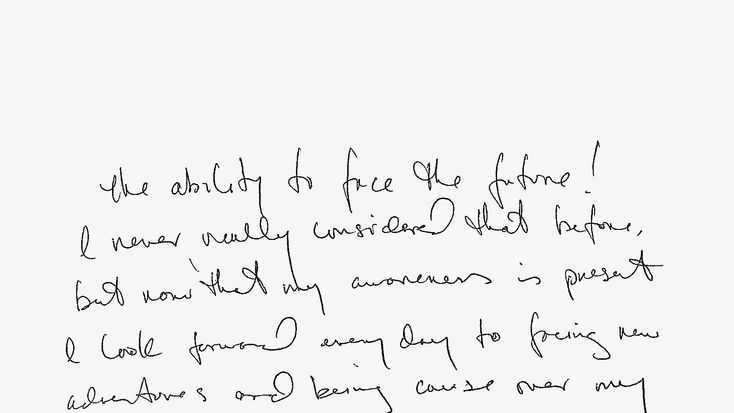 the ability to face the future!
I never really considered that before,
but now that my awareness is present
I look forward every day to facing new
adventures and being cause over my